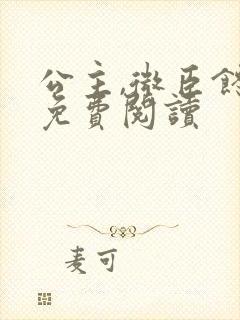 公主,微臣
免費閱讀
麦可